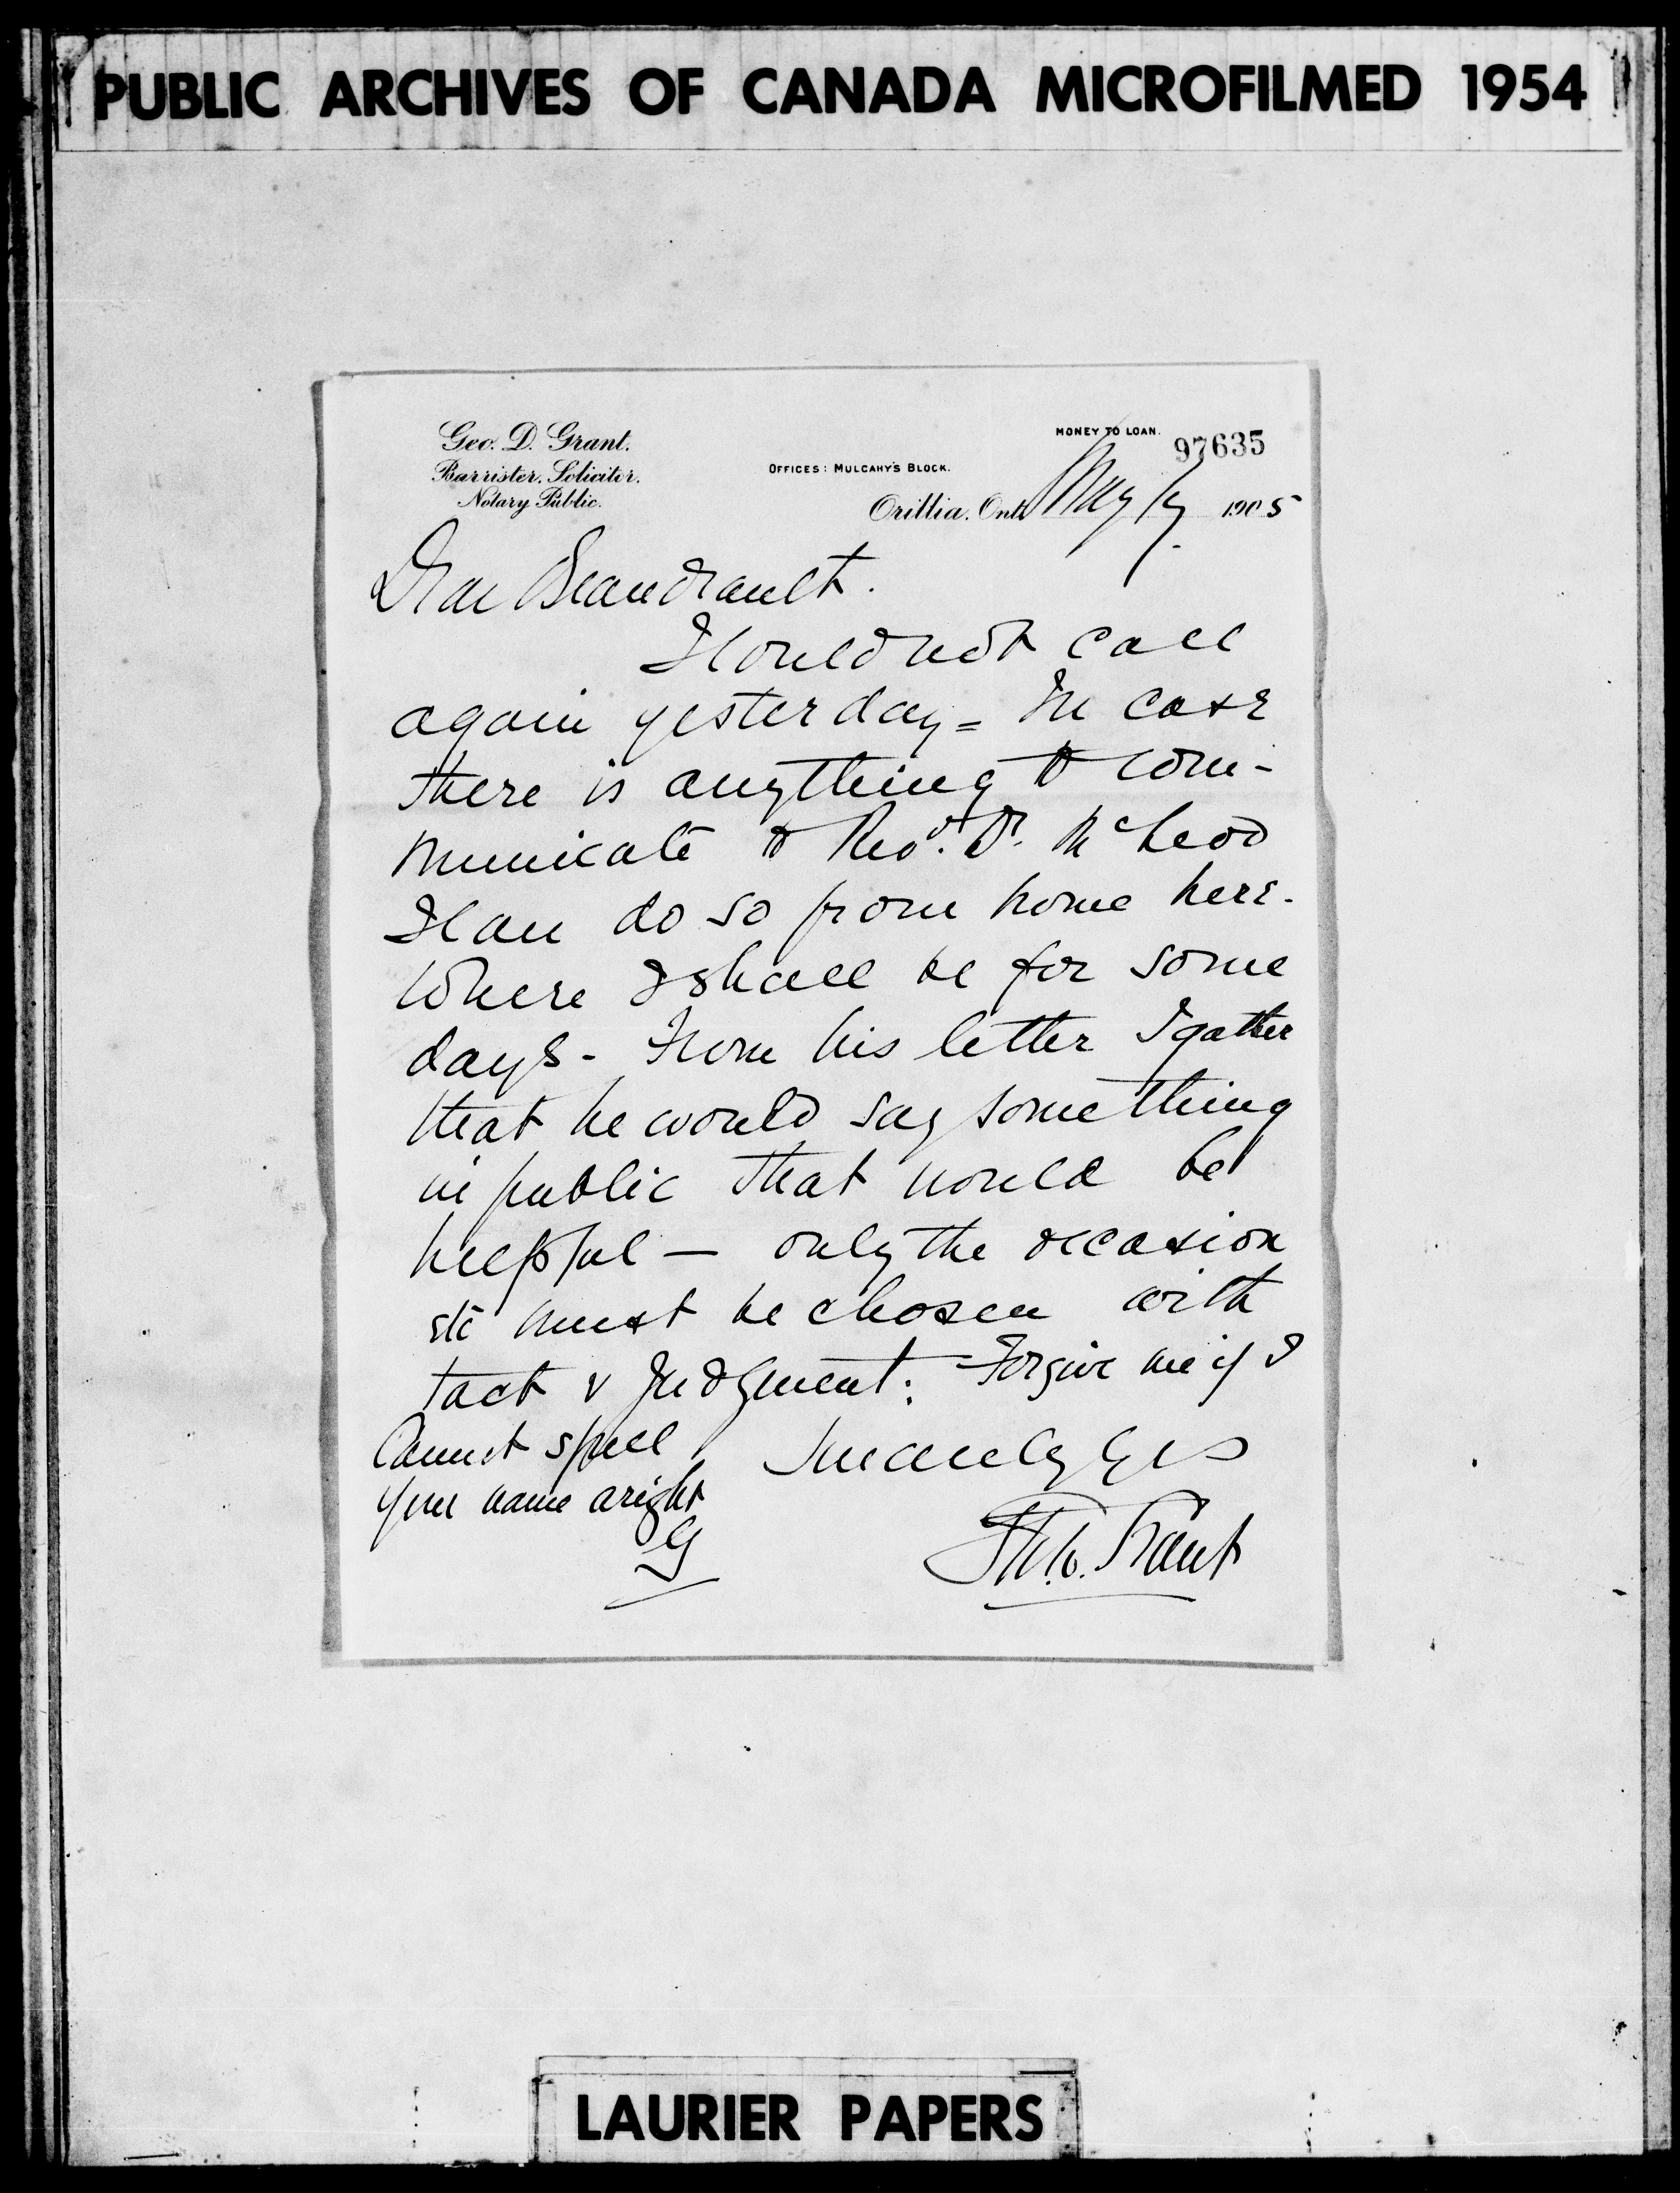 PUBLIC ARCHIVES OF CANADA MICROFILMED 1954
Geo. D. Grant.
Barrister, Solicitor,
Notary Public.
OFFICES: MULCAHY'S BLOCK.
MONEY TO LOAN.
97635
Orillia, Ont. May 1905
Dear Beaudrault.
I could not call
again yesterday = In case
there is anything to com-
municate to Revd. Dr. McLeod
I can do so from home here.
Where I shall be for some
days - From his letter I gather
that he would say something
in public that would be
helpful — only the occasion
etc must be chosen with
tact & judgment. Forgive me if I
Cannot spell
your name aright
G
Sincerely Yrs
Grant
LAURIER PAPERS